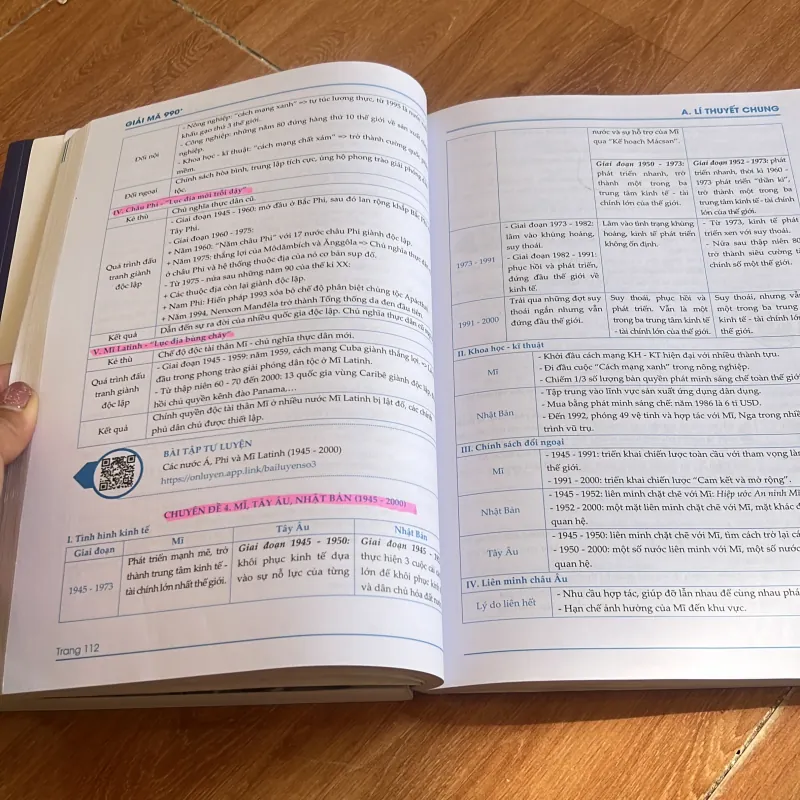 GIẢI MÃ 990+
Đối nội
- Nông nghiệp: "cách mạng xanh" => tự túc lương thực, từ 1995 là nước
khẩu gạo thứ 3 thế giới.
- Công nghiệp: những năm 80 đứng hàng thứ 10 thế giới về sản xuất
nghiệp.
- Khoa học - kĩ thuật: "cách mạng chất xám" => trở thành cường quốc
mềm.
Đối ngoại
Chính sách hòa bình, trung lập tích cực, ủng hộ phong trào giải phóng
tộc.
IV. Châu Phi - "Lục địa mới trỗi dậy"
Kẻ thù
Chủ nghĩa thực dân cũ.
Quá trình đấu
tranh giành
độc lập
- Giai đoạn 1945 - 1960: mở đầu ở Bắc Phi, sau đó lan rộng khắp Bắc Phi,
Tây Phi.
- Giai đoạn 1960 - 1975:
+ Năm 1960: "Năm châu Phi" với 17 nước châu Phi giành độc lập.
+ Năm 1975: thắng lợi của Môdămbích và Ănggôla => Chủ nghĩa thực dân
ở châu Phi và hệ thống thuộc địa của nó cơ bản sụp đổ.
- Từ 1975 - nửa sau những năm 90 của thế kỉ XX:
+ Các thuộc địa còn lại giành độc lập.
+ Nam Phi: Hiến pháp 1993 xóa bỏ chế độ phân biệt chủng tộc
+ Năm 1994, Nenxơn Manđêla trở thành Tổng thống da đen đầu tiên.
Kết quả
Dẫn đến sự ra đời của nhiều quốc gia độc lập. Chủ nghĩa thực dân cũ
V. Mĩ Latinh - "Lục địa bùng cháy"
Kẻ thù
Chế độ độc tài thân Mĩ - chủ nghĩa thực dân mới.
Quá trình đấu
tranh giành
độc lập
- Giai đoạn 1945 - 1959: năm 1959, cách mạng Cuba giành thắng lợi, =>
đầu trong phong trào giải phóng dân tộc ở Mĩ Latinh.
- Từ thập niên 60 - 70 đến 2000: 13 quốc gia vùng Caribê giành độc lập,
hồi chủ quyền kênh đào Panama,…
Kết quả
Chính quyền độc tài thân Mĩ ở nhiều nước Mĩ Latinh bị lật đổ, các chính
phủ dân chủ được thiết lập.
BÀI TẬP TỰ LUYỆN
Các nước Á, Phi và Mĩ Latinh (1945 - 2000)
https://onluyen.app.link/bailuyenso3
CHUYÊN ĐỀ 4. MĨ, TÂY ÂU, NHẬT BẢN (1945 - 2000)
I. Tình hình kinh tế
Giai đoạn
Mĩ
Tây Âu
Nhật Bản
1945 - 1973
Phát triển mạnh mẽ, trở
thành trung tâm kinh tế -
tài chính lớn nhất thế giới.
Giai đoạn 1945 - 1950:
khôi phục kinh tế dựa
vào sự nỗ lực của từng
Giai đoạn 1945 -
thực hiện 3 cuộc cải
lớn để khôi phục kinh
và dân chủ hóa đất
Trang 112
A. LÍ THUYẾT CHUNG
nước và sự hỗ trợ của Mĩ
qua "Kế hoạch Mácsan".
Giai đoạn 1950 - 1973:
phát triển nhanh, trở
thành một trong ba
trung tâm kinh tế - tài
chính lớn của thế giới.
Giai đoạn 1952 - 1973: phát
triển nhanh, thời kì 1960 -
1973 phát triển "thần kì",
trở thành một trong ba
trung tâm kinh tế - tài chính
lớn của thế giới.
1973 - 1991
- Giai đoạn 1973 - 1982:
lâm vào khủng hoảng,
suy thoái.
- Giai đoạn 1982 - 1991:
phục hồi và phát triển,
đứng đầu thế giới về
kinh tế.
Lâm vào tình trạng khủng
hoảng, kinh tế phát triển
không ổn định.
- Từ 1973, kinh tế phát
triển xen với suy thoái.
- Nửa sau thập niên 80
trở thành siêu cường tài
chính số một thế giới.
1991 - 2000
Trải qua những đợt suy
thoái ngắn nhưng vẫn
đứng đầu thế giới.
Suy thoái, phục hồi và
phát triển. Vẫn là một
trong ba trung tâm kinh tế
- tài chính lớn của thế giới.
Suy thoái, nhưng vẫn
một trong ba trung tâm
kinh tế - tài chính lớn
thế giới.
II. Khoa học - kĩ thuật
Mĩ
- Khởi đầu cách mạng KH - KT hiện đại với nhiều thành tựu.
- Đi đầu cuộc "Cách mạng xanh" trong nông nghiệp.
- Chiếm 1/3 số lượng bản quyền phát minh sáng chế toàn thế giới
Nhật Bản
- Tập trung vào lĩnh vực sản xuất ứng dụng dân dụng.
- Mua bằng phát minh sáng chế: năm 1986 là 6 tỉ USD.
- Đến 1992, phóng 49 vệ tinh và hợp tác với Mĩ, Nga trong nhiều
trình vũ trụ.
III. Chính sách đối ngoại
Mĩ
- 1945 - 1991: triển khai chiến lược toàn cầu với tham vọng làm
thế giới.
- 1991 - 2000: triển khai chiến lược "Cam kết và mở rộng".
Nhật Bản
- 1945 - 1952: liên minh chặt chẽ với Mĩ: Hiệp ước An ninh Mĩ
- 1952 - 2000: một mặt liên minh chặt chẽ với Mĩ, mặt khác
quan hệ.
Tây Âu
- 1945 - 1950: liên minh chặt chẽ với Mĩ, tìm cách trở lại
- 1950 - 2000: một số nước liên minh với Mĩ, một số nước
quan hệ.
IV. Liên minh châu Âu
Lý do liên hết
- Nhu cầu hợp tác, giúp đỡ lẫn nhau để cùng nhau phát
- Hạn chế ảnh hưởng của Mĩ đến khu vực.